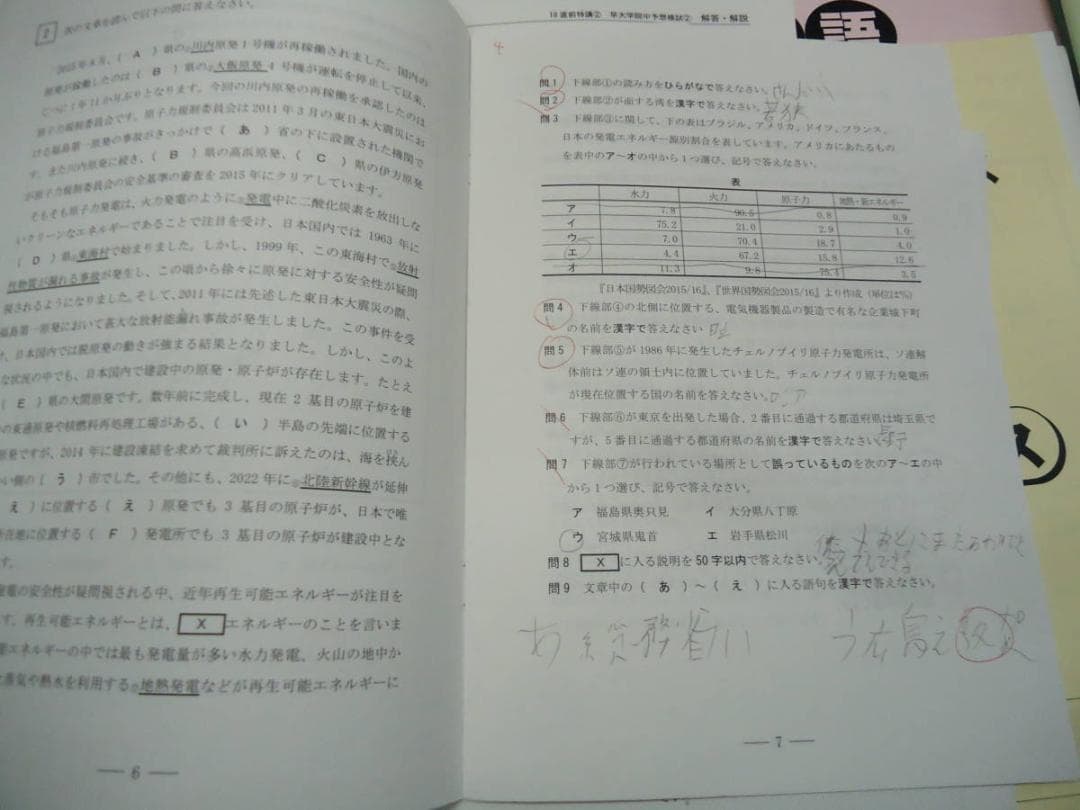 2 次の文章を読んで以下の問に答えなさい。
2015年8月、（ A ）県の川内原発1号機が再稼働されました。国内の
原発が稼働したのは（ B ）県の大飯原発4号機が運転を停止して以来、
1年11か月ぶりとなります。今回の川内原発の再稼働を承認したのは
原子力規制委員会です。原子力規制委員会は2011年3月の東日本大震災にお
ける福島第一原発の事故がきっかけで（ あ ）省の下に設置された機関で
す。また川内原発に続き、（ B ）県の高浜原発、（ C ）県の伊方原発
が原子力規制委員会の安全基準の審査を2015年にクリアしています。
そもそも原子力発電は、火力発電のように発電中に二酸化炭素を放出しな
いクリーンなエネルギーであることで注目を受け、日本国内では1963年に
（ D ）県東海村で始まりました。しかし、1999年、この東海村で放射
性物質が漏れる事故が発生し、この頃から徐々に原発に対する安全性が疑問
視されるようになりました。そして、2011年には先述した東日本大震災の際、
福島第一原発において甚大な放射能漏れ事故が発生しました。この事件を受
け、日本国内では脱原発の動きが強まる結果となりました。しかし、このよ
な状況の中でも、日本国内で建設中の原発・原子炉が存在します。たとえ
（ E ）県の大間原発です。数年前に完成し、現在2基目の原子炉を建
の東通原発や核燃料再処理工場がある、（ い ）半島の先端に位置する
原発ですが、2014年に建設凍結を求めて裁判所に訴えたのは、海を挟ん
い側の（ う ）市でした。その他にも、2022年に北陸新幹線が延伸
え ）に位置する（ え ）原発でも3基目の原子炉が、日本で唯
所在地に位置する（ F ）発電所でも3基目の原子炉が建設中とな
す。
発電の安全性が疑問視される中、近年再生可能エネルギーが注目を
す。再生可能エネルギーとは、X エネルギーのことを言いま
能エネルギーの中では最も発電量が多い水力発電、火山の地中か
蒸気や熱水を利用する地熱発電などが再生可能エネルギーに
― 6 ―
18直前特講② 早大学院中予想模試② 解答・解説
問1 下線部①の読み方をひらがなで答えなさい。せんだい
問2 下線部②が面する湾を漢字で答えなさい。若狭
問3 下線部③に関して、下の表はブラジル、アメリカ、ドイツ、フランス、
日本の発電エネルギー源別割合を表しています。アメリカにあたるもの
を表中のア～オの中から1つ選び、記号で答えなさい。
表
水力 火力 原子力 地熱・新エネルギー
ア 7.8 90.5 0.8 0.9
イ 75.2 21.0 2.9 1.0
ウ 7.0 70.4 18.7 4.0
エ 4.4 67.2 15.8 12.6
オ 11.3 9.8 75.4 3.5
『日本国勢図会2015/16』、『世界国勢図会2015/16』より作成（単位は%）
問4 下線部④の北側に位置する、電気機器製品の製造で有名な企業城下町
の名前を漢字で答えなさい 日立
問5 下線部⑤が1986年に発生したチェルノブイリ原子力発電所は、ソ連解
体前はソ連の領土内に位置していました。チェルノブイリ原子力発電所
が現在位置する国の名前を答えなさい。ロシア
問6 下線部⑥が東京を出発した場合、2番目に通過する都道府県は埼玉県で
すが、5番目に通過する都道府県の名前を漢字で答えなさい。
問7 下線部⑦が行われている場所として誤っているものを次のア～エの中
から1つ選び、記号で答えなさい。
ア 福島県奥只見 イ 大分県八丁原
ウ 宮城県鬼首 エ 岩手県松川
問8 X に入る説明を50字以内で答えなさい。
問9 文章中の（ あ ）～（ え ）に入る語句を漢字で答えなさい。
あ 総務省 い う 大島 え
― 7 ―
語
ス